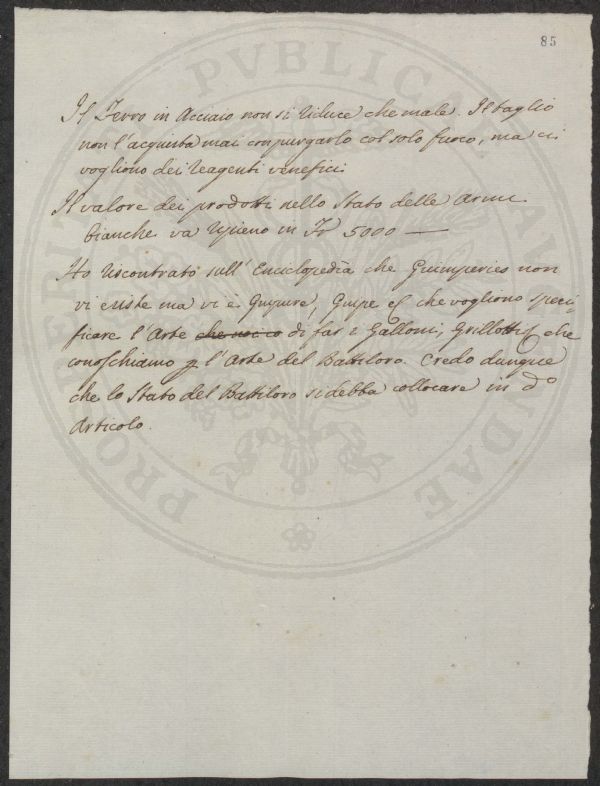 85
Il Ferro in Acciaio non si riduce che male. Il taglio
non l'acquista mai con purgarlo col solo fuoco, ma ci
vogliono dei reagenti venefici
Il valore dei prodotti nello Stato delle Armi
bianche va ripieno in Fr 5000 —
Ho riscontrato sull' Enciclopedia che Guimperies non
vi esiste ma vi è Guipure, Guipe e che vogliono speci-
ficare l'Arte di far i Galloni, Grillotti che
conoschiamo p l'Arte del Battiloro. Credo dunque
che lo Stato del Battiloro si debba collocare in do
Articolo.
PROSPERITATI PVBLICAE AVGENDAE